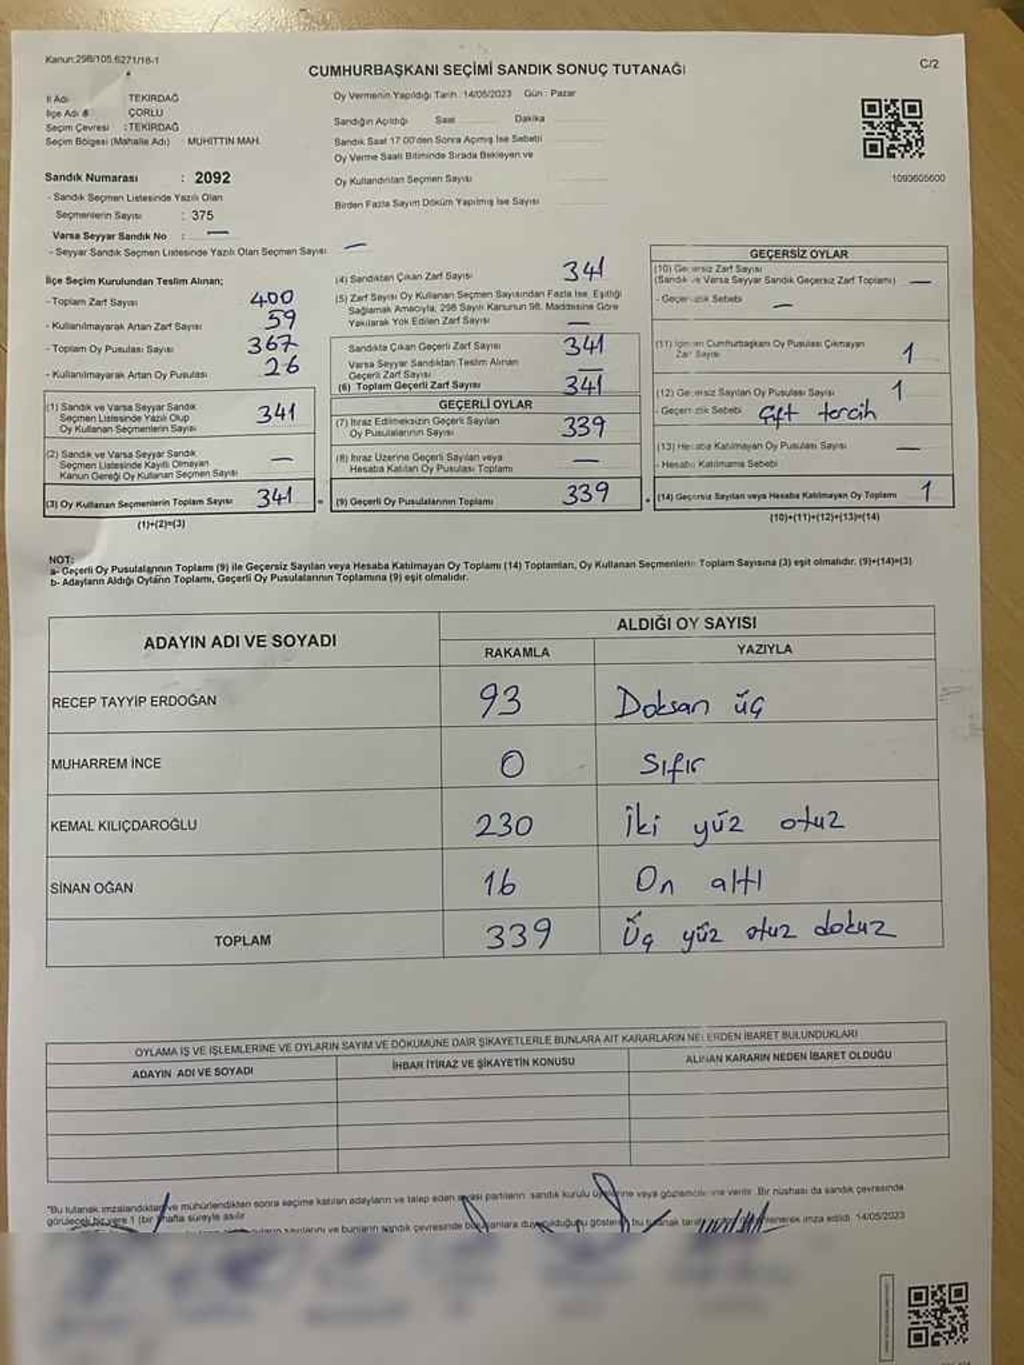 Kanun:298/105.6271/16-1
C/2
CUMHURBAŞKANI SEÇİMİ SANDIK SONUÇ TUTANAĞI
İl Adı : TEKİRDAĞ
İlçe Adı : ÇORLU
Seçim Çevresi : TEKİRDAĞ
Seçim Bölgesi (Mahalle Adı) : MUHİTTİN MAH.
Oy Vermenin Yapıldığı Tarih: 14/05/2023 Gün : Pazar
Sandığın Açıldığı Saat Dakika
Sandık Saat 17.00'den Sonra Açılmış İse Sebebi
Oy Verme Saati Bitiminde Sırada Bekleyen ve
Oy Kullandırılan Seçmen Sayısı
Birden Fazla Sayım Döküm Yapılmış İse Sayısı
1093605600
Sandık Numarası : 2092
- Sandık Seçmen Listesinde Yazılı Olan
Seçmenlerin Sayısı : 375
Varsa Seyyar Sandık No : —
- Seyyar Sandık Seçmen Listesinde Yazılı Olan Seçmen Sayısı —
İlçe Seçim Kurulundan Teslim Alınan;
- Toplam Zarf Sayısı 400
- Kullanılmayarak Artan Zarf Sayısı 59
- Toplam Oy Pusulası Sayısı 367
- Kullanılmayarak Artan Oy Pusulası 26
(1) Sandık ve Varsa Seyyar Sandık
Seçmen Listesinde Yazılı Olup
Oy Kullanan Seçmenlerin Sayısı 341
(2) Sandık ve Varsa Seyyar Sandık
Seçmen Listesinde Kayıtlı Olmayan
Kanun Gereği Oy Kullanan Seçmen Sayısı —
(3) Oy Kullanan Seçmenlerin Toplam Sayısı 341 =
(1)+(2)=(3)
(4) Sandıktan Çıkan Zarf Sayısı 341
(5) Zarf Sayısı Oy Kullanan Seçmen Sayısından Fazla İse, Eşitliği
Sağlamak Amacıyla, 298 Sayılı Kanunun 98. Maddesine Göre
Yakılarak Yok Edilen Zarf Sayısı —
Sandıkta Çıkan Geçerli Zarf Sayısı 341
Varsa Seyyar Sandıktan Teslim Alınan
Geçerli Zarf Sayısı —
(6) Toplam Geçerli Zarf Sayısı 341
GEÇERLİ OYLAR
(7) İtiraz Edilmeksizin Geçerli Sayılan
Oy Pusulalarının Sayısı 339
(8) İtiraz Üzerine Geçerli Sayılan veya
Hesaba Katılan Oy Pusulası Toplamı —
(9) Geçerli Oy Pusulalarının Toplamı 339 +
GEÇERSİZ OYLAR
(10) Geçersiz Zarf Sayısı
(Sandık ve Varsa Seyyar Sandık Geçersiz Zarf Toplamı) —
- Geçersizlik Sebebi —
(11) İçinden Cumhurbaşkanı Oy Pusulası Çıkmayan
Zarf Sayısı 1
(12) Geçersiz Sayılan Oy Pusulası Sayısı 1
- Geçersizlik Sebebi çift tercih
(13) Hesaba Katılmayan Oy Pusulası Sayısı —
- Hesaba Katılmama Sebebi
(14) Geçersiz Sayılan veya Hesaba Katılmayan Oy Toplamı 1
(10)+(11)+(12)+(13)=(14)
NOT:
a- Geçerli Oy Pusulalarının Toplamı (9) ile Geçersiz Sayılan veya Hesaba Katılmayan Oy Toplamı (14) Toplamları, Oy Kullanan Seçmenlerin Toplam Sayısına (3) eşit olmalıdır. (9)+(14)=(3)
b- Adayların Aldığı Oyların Toplamı, Geçerli Oy Pusulalarının Toplamına (9) eşit olmalıdır.
ADAYIN ADI VE SOYADI ALDIĞI OY SAYISI
RAKAMLA YAZIYLA
RECEP TAYYİP ERDOĞAN 93 Doksan üç
MUHARREM İNCE 0 Sıfır
KEMAL KILIÇDAROĞLU 230 İki yüz otuz
SİNAN OĞAN 16 On altı
TOPLAM 339 Üç yüz otuz dokuz
OYLAMA İŞ VE İŞLEMLERİNE VE OYLARIN SAYIM VE DÖKÜMÜNE DAİR ŞİKAYETLERLE BUNLARA AİT KARARLARIN NELERDEN İBARET BULUNDUKLARI
ADAYIN ADI VE SOYADI İHBAR İTİRAZ VE ŞİKAYETİN KONUSU ALINAN KARARIN NEDEN İBARET OLDUĞU
"Bu tutanak imzalandıktan ve mühürlendikten sonra seçime katılan adayların ve talep eden siyasi partilerin sandık kurulu üyelerine veya gözlemcilerine verilir. Bir nüshası da sandık çevresinde
görülecek bir yere 1 (bir) hafta süreyle asılır.
sandık çevresinde bulunanlara duyurulduğunu gösteren bu tutanak imza edildi. 14/05/2023